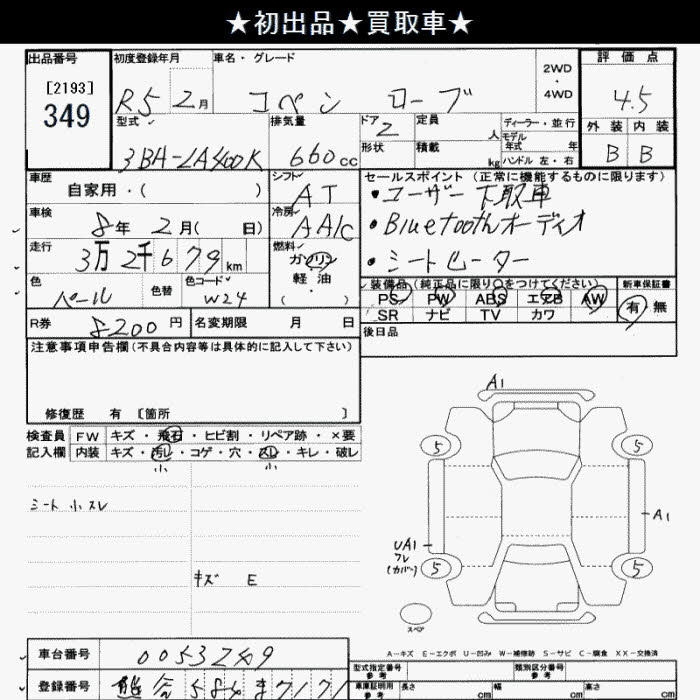 ★初出品★買取車★
出品番号
[2193]
349
初度登録年月
R5 2月
車名・グレード
コペン ローブ
2WD
・
4WD
評価点
4.5
外装 内装
B B
型式
3BA-LA400K
排気量
660cc
ドア
2
形状
定員
人
積載
kg
ディーラー・並行
モデル
年式 年
ハンドル 左・右
車歴
自家用・( )
シフト
AT
車検
8年 2月( 日)
冷房
AA/C
走行
3万2千679km
燃料
ガソリン
軽油
( ・ )
色
パール
色替
色コード
W24
セールスポイント (正常に機能するものに限ります)
・ユーザー下取車
・Bluetoothオーディオ
・シートヒーター
装備品(純正品に限り○をつけてください)
PS PW ABS エアB AW
SR ナビ TV カワ
新車保証書
有 無
R券
8200円
名変期限 月 日
後日品
注意事項申告欄(不具合内容等は具体的に記入して下さい)
修復歴 有 [箇所 ]
検査員
記入欄
FW キズ・飛石・ヒビ割・リペア跡・×要
内装 キズ・汚レ・コゲ・穴・スレ・キレ・破レ
小 小
シート小スレ
キズ E
A1
5 5
A1
UA1
フレ
(カバー)
5 5
スペア
A-キズ E-エクボ U-凹み W-補修跡 S-サビ C-腐食 XX-交換済
車台番号
0053249
登録番号
型式指定番号
参考
類別区分番号
参考
車庫証明用
参考
長さ cm
幅 cm
高さ cm